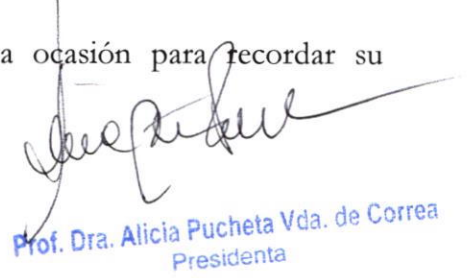 a ocasión para recordar su
Prof. Dra. Alicia Pucheta Vda. de Correa
Presidenta